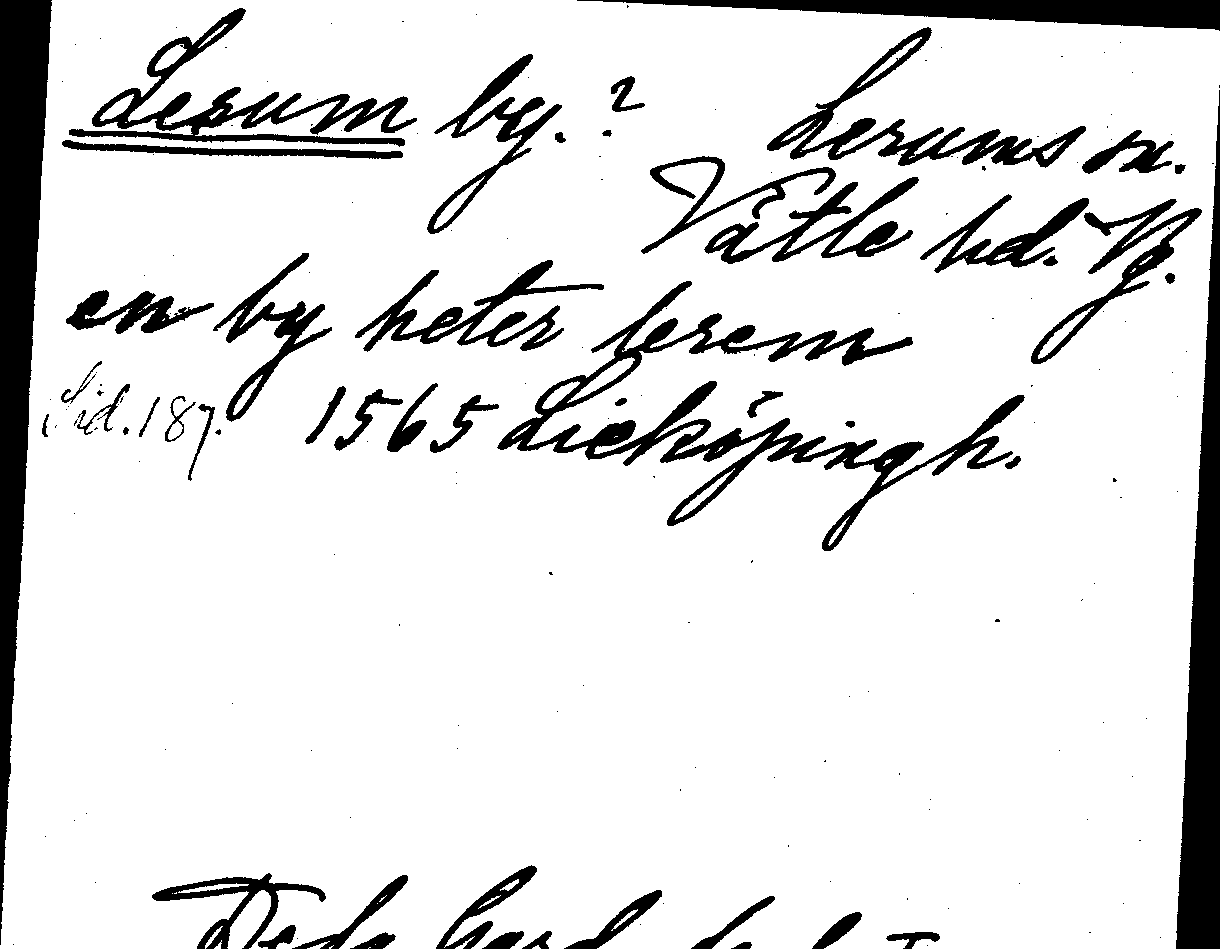 Lerum by.? Lerums sn.
Vätle hd. Vg.
en by heter lerem
Sid. 187. 1565 Lieköpingh.